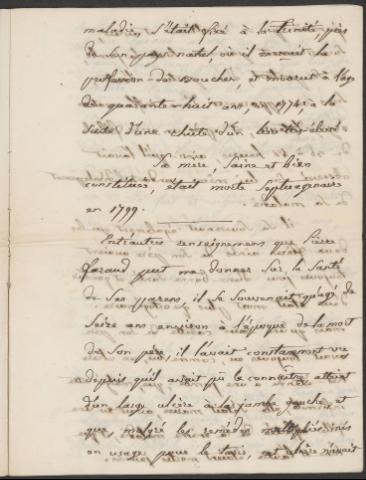 maladie, s'était fixé à la Trinité, près
de son pays natal, où il exerçait la
profession de Boucher, et mourut à l'age
de quarante huit ans, en 1774, à la
suite d'une chute d'un lieu très élevé.
Sa mère, saine et bien
constituée, était morte septuagenaire
en 1799.
Entr'autres renseignemens que Pierre
Garaud put me donner sur la santé
de ses parens, il se souvenait qu'agé de
seize ans environ à l'époque de la mort
de son père, il l'avait constamment vu
depuis qu'il avait pû le connaître, atteint
d'un large ulcère à la jambe gauche, et
que malgré les remèdes multipliés mis
en usage pour le tarir cet ulcère n'avait